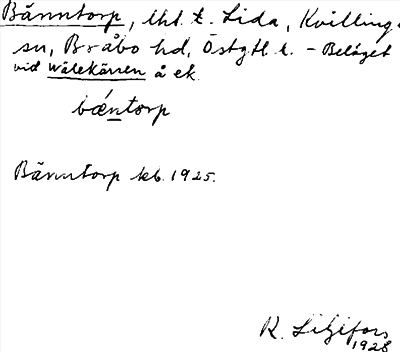 Bänntorp, lht t. Lida, Kvillinge
sn, Bråbo hd, Östgtl l. - Beläget
vid Wälekärren å ek.
bæ´ntorp
Bänntorp kb. 1925.
R. Liljefors
1928